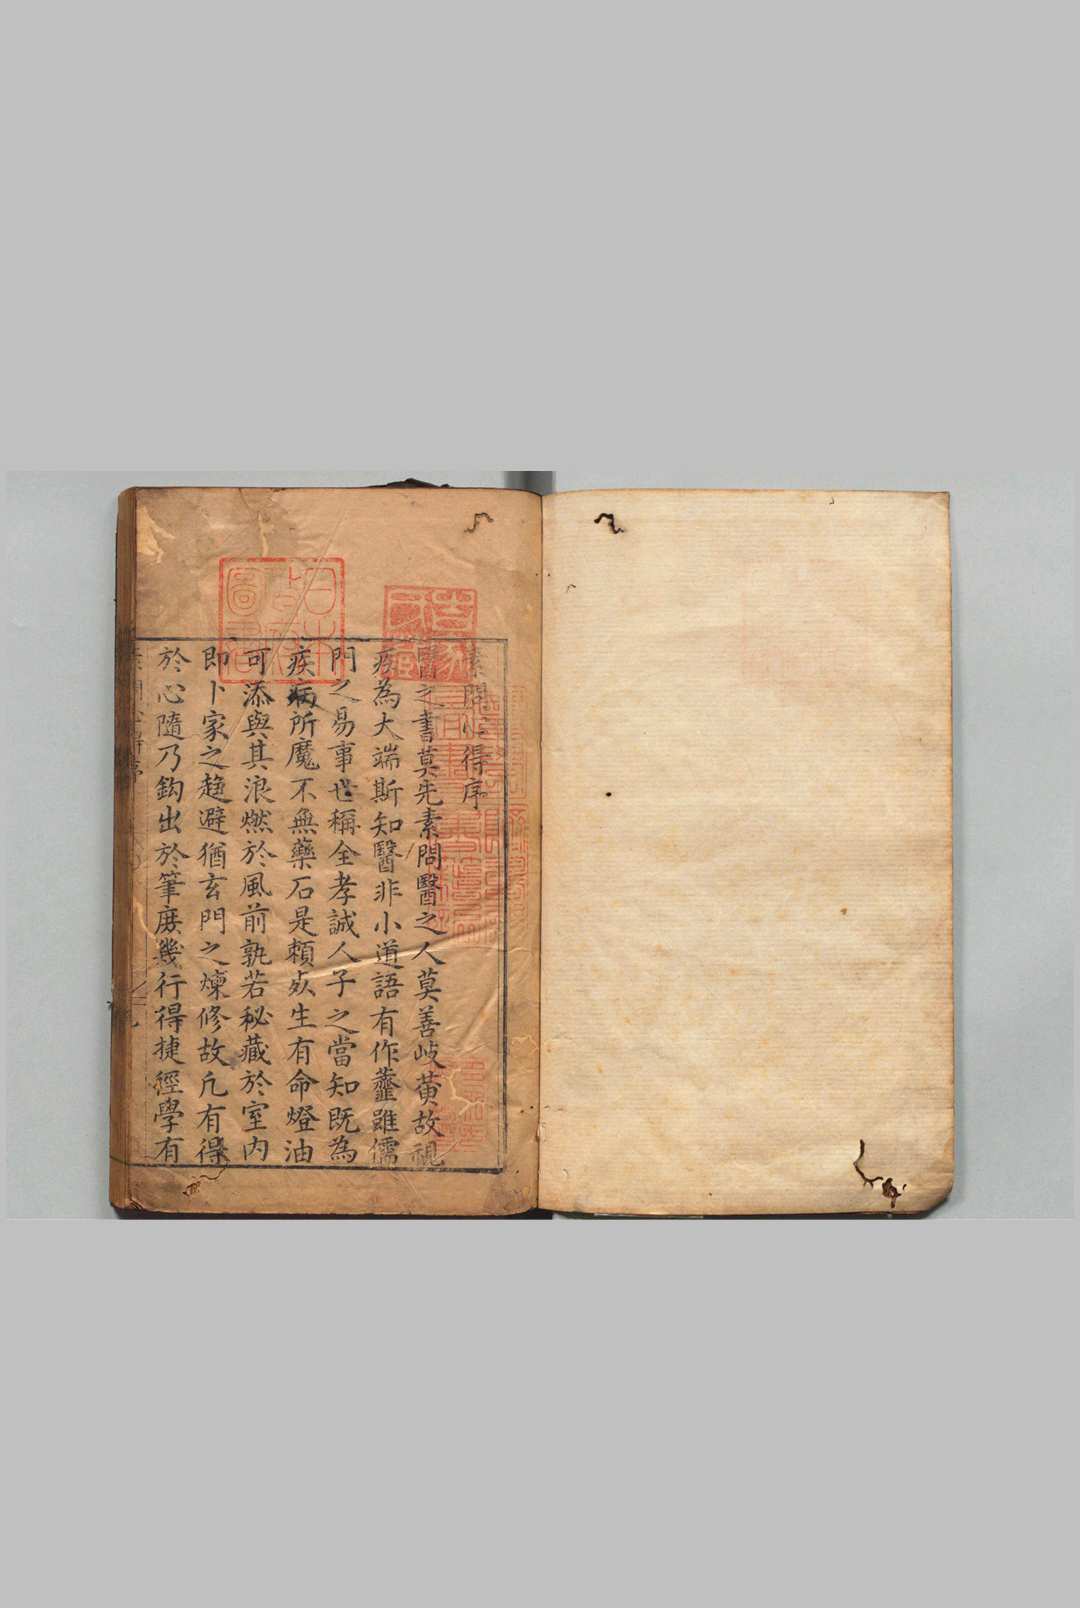 素問心得序
醫之書莫先素問醫之人莫善岐黃故視
疾為大端斯知醫非小道語有作虀雖儒
門之易事世稱全孝誠人子之當知既為
疾病所魔不無藥石是賴奌生有命燈油
可添與其浪燃於風前孰若秘藏於室內
即卜家之趨避猶玄門之煉修故凡有得
於心隨乃鈎出於筆庶幾行得捷徑學有
日本
政府
圖書